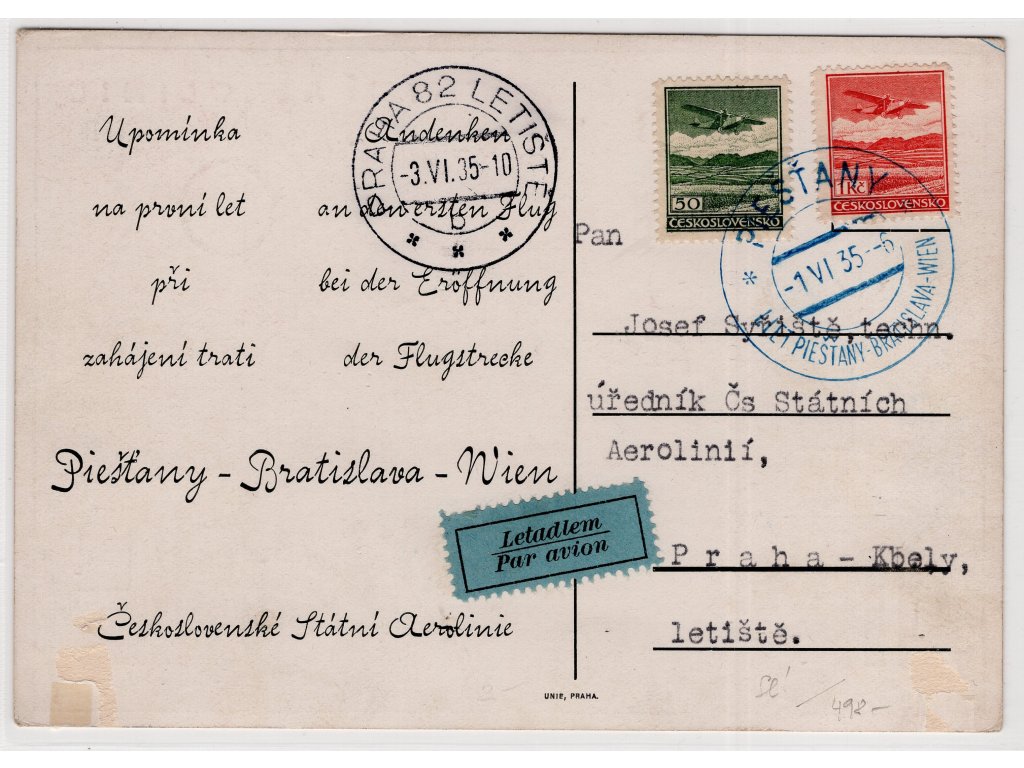 Upomínka
na první let
při
zahájení trati
Andenken
an den ersten Flug
bei der Eröffnung
der Flugstrecke
Piešťany - Bratislava - Wien
Československé Státní Aerolinie
PRAHA 82 LETIŠTĚ
-3.VI.35-10
b
Letadlem
Par avion
50
ČESKOSLOVENSKO
1Kč
ČESKOSLOVENSKO
PIEŠŤANY
-1 VI 35--6
LET PIEŠTANY-BRATISLAVA-WIEN
Pan
Josef techn.
úředník Čs Státních
Aerolinií,
Praha - Kbely,
letiště.
UNIE, PRAHA.
498-